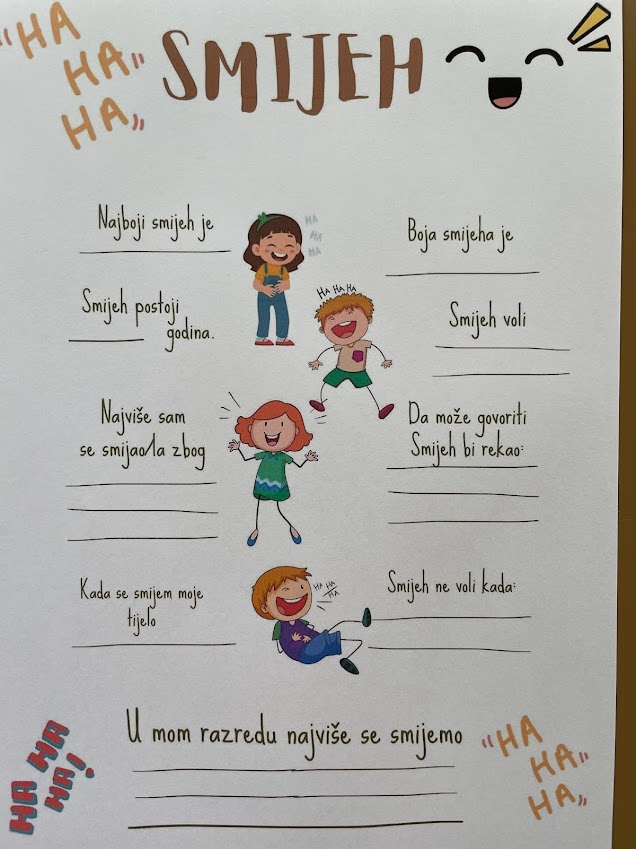 "HA
HA
HA"
SMIJEH
Najboji smijeh je
HA
HA
HA
Boja smijeha je
Smijeh postoji
godina.
HA HA HA
Smijeh voli
Najviše sam
se smijao/la zbog
Da može govoriti
Smijeh bi rekao:
Kada se smijem moje
tijelo
HA HA
HA
Smijeh ne voli kada:
U mom razredu najviše se smijemo
HA HA
HA!
"HA
HA
HA"